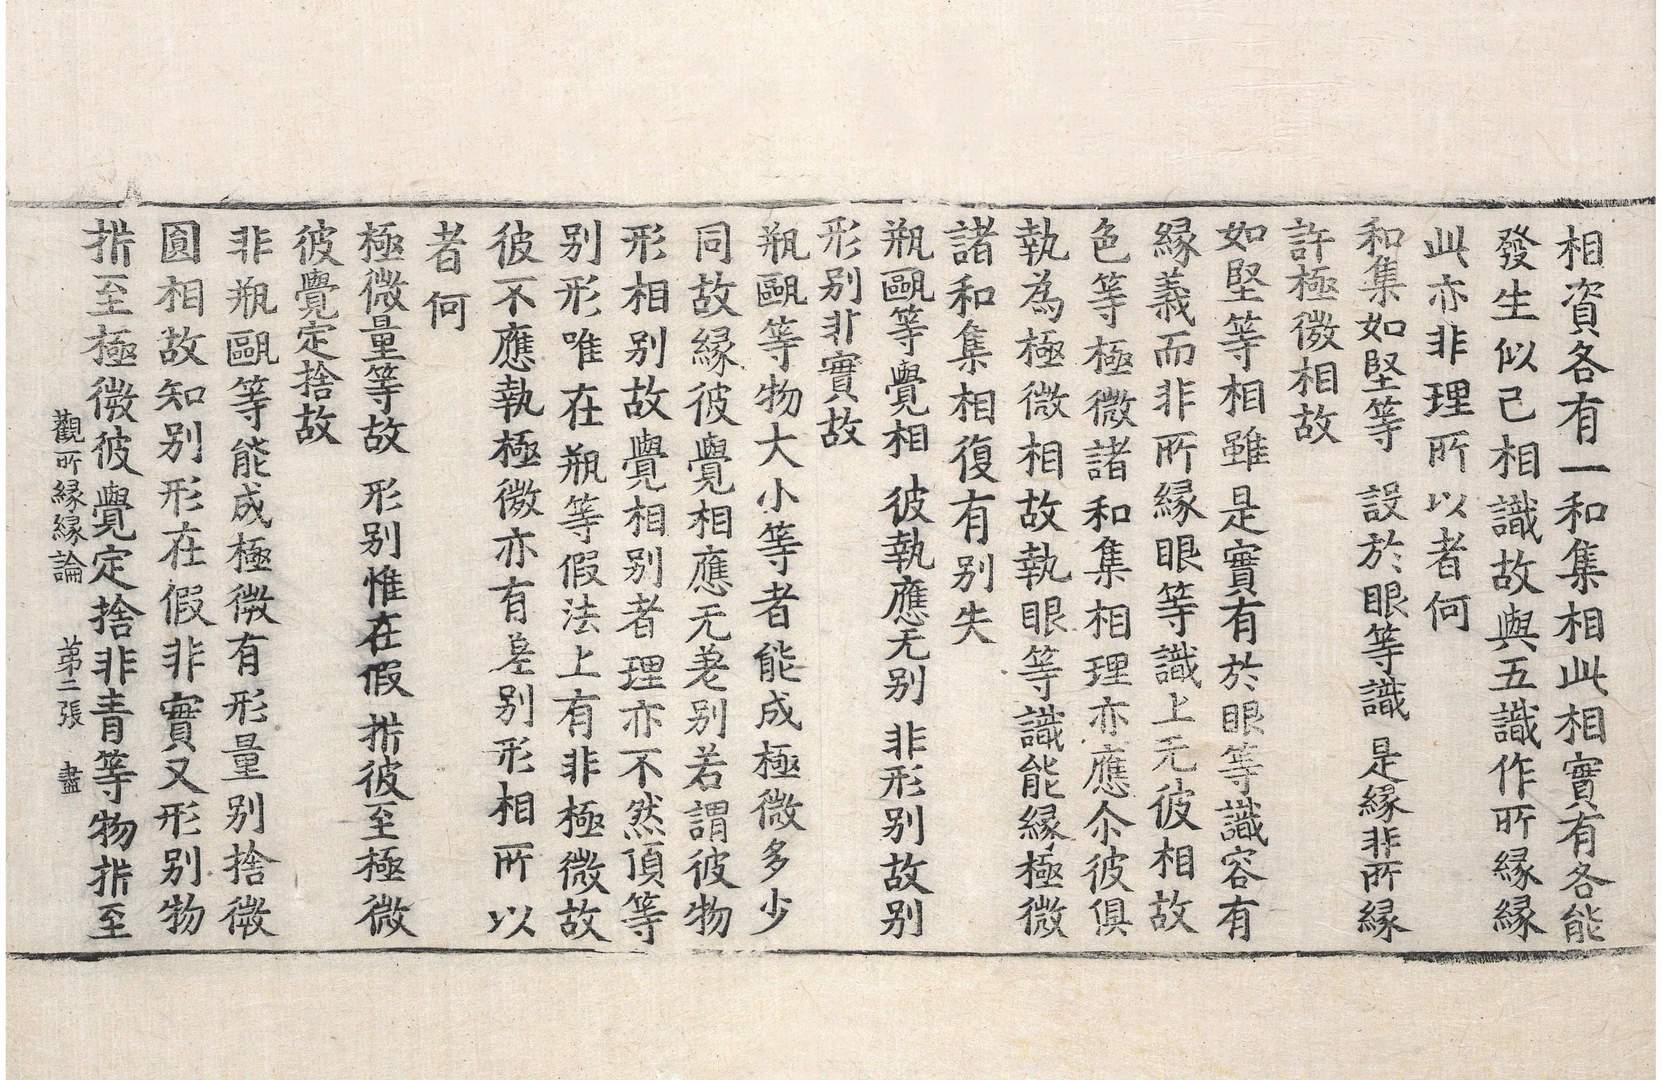 相資各有一和集相此相實有各能
發生似己相識故與五識作所緣緣
此亦非理所以者何
和集如堅等 設於眼等識 是緣非所緣
許極微相故
如堅等相雖是實有於眼等識容有
緣義而非所緣眼等識上无彼相故
色等極微諸和集相理亦應尒彼俱
執為極微相故執眼等識能緣極微
諸和集相復有別失
瓶甌等覺相 彼執應无別 非形別故別
形別非實故
瓶甌等物大小等者能成極微多少
同故緣彼覺相應无差別若謂彼物
形相別故覺相別者理亦不然頂等
別形唯在瓶等假法上有非極微故
彼不應執極微亦有差別形相所以
者何
極微量等故 形別惟在假 㭊彼至極微
彼覺定捨故
非瓶甌等能成極微有形量別捨微
圓相故知別形在假非實又形別物
㭊至極微彼覺定捨非青等物㭊至
觀所緣緣論 苐二張 盡